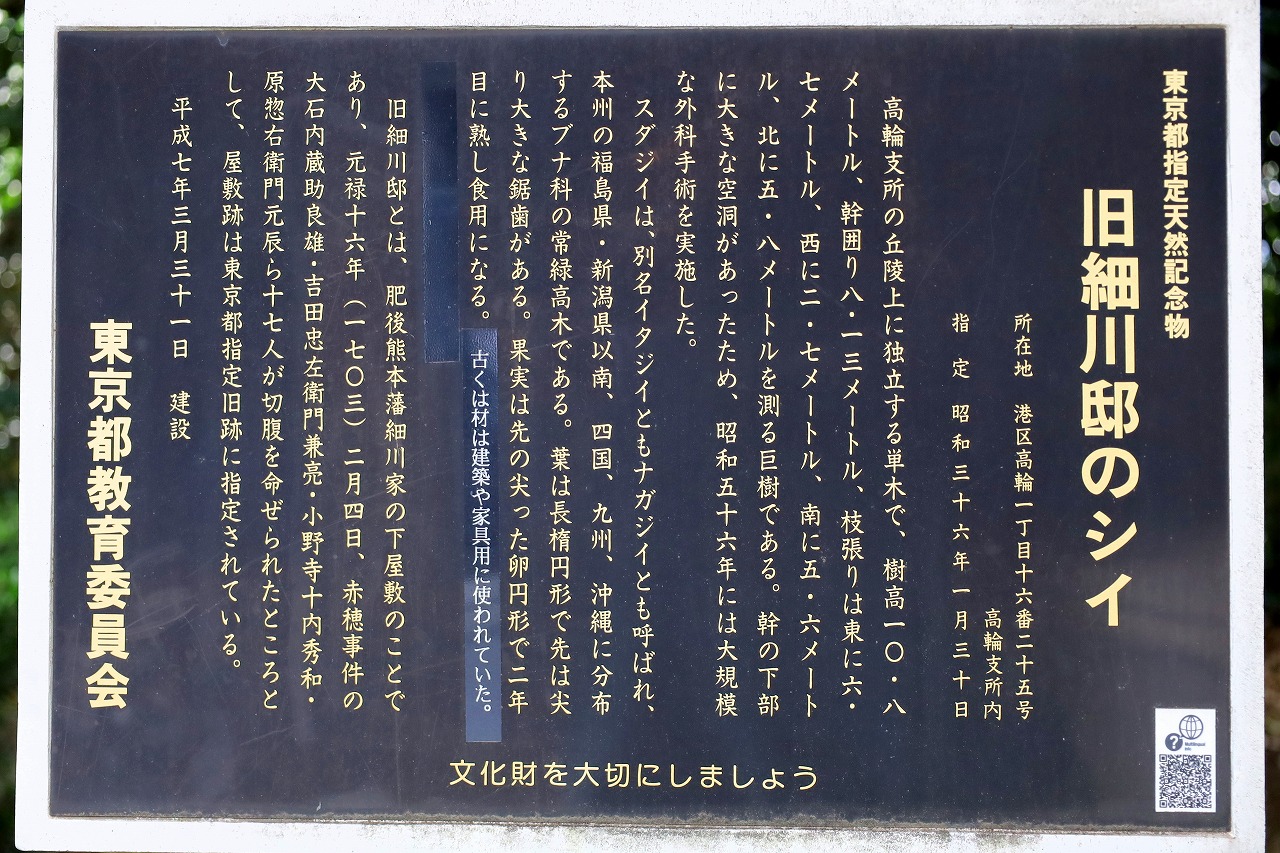 東京都指定天然記念物
旧細川邸のシイ
所在地 港区高輪一丁目十六番二十五号
高輪支所内
指定 昭和三十六年一月三十日
高輪支所の丘陵上に独立する単木で、樹高一〇・八
メートル、幹囲り八・一三メートル、枝張りは東に六・
七メートル、西に二・七メートル、南に五・六メート
ル、北に五・八メートルを測る巨樹である。幹の下部
に大きな空洞があったため、昭和五十六年には大規模
な外科手術を実施した。
スダジイは、別名イタジイともナガジイとも呼ばれ、
本州の福島県・新潟県以南、四国、九州、沖縄に分布
するブナ科の常緑高木である。葉は長楕円形で先は尖
り大きな鋸歯がある。果実は先の尖った卵円形で二年
目に熟し食用になる。古くは材は建築や家具用に使われていた。
旧細川邸とは、肥後熊本藩細川家の下屋敷のことで
あり、元禄十六年（一七〇三）二月四日、赤穂事件の
大石内蔵助良雄・吉田忠左衛門兼亮・小野寺十内秀和・
原惣右衛門元辰ら十七人が切腹を命ぜられたところと
して、屋敷跡は東京都指定旧跡に指定されている。
平成七年三月三十一日 建設
東京都教育委員会
文化財を大切にしましょう
Multilingual
Info